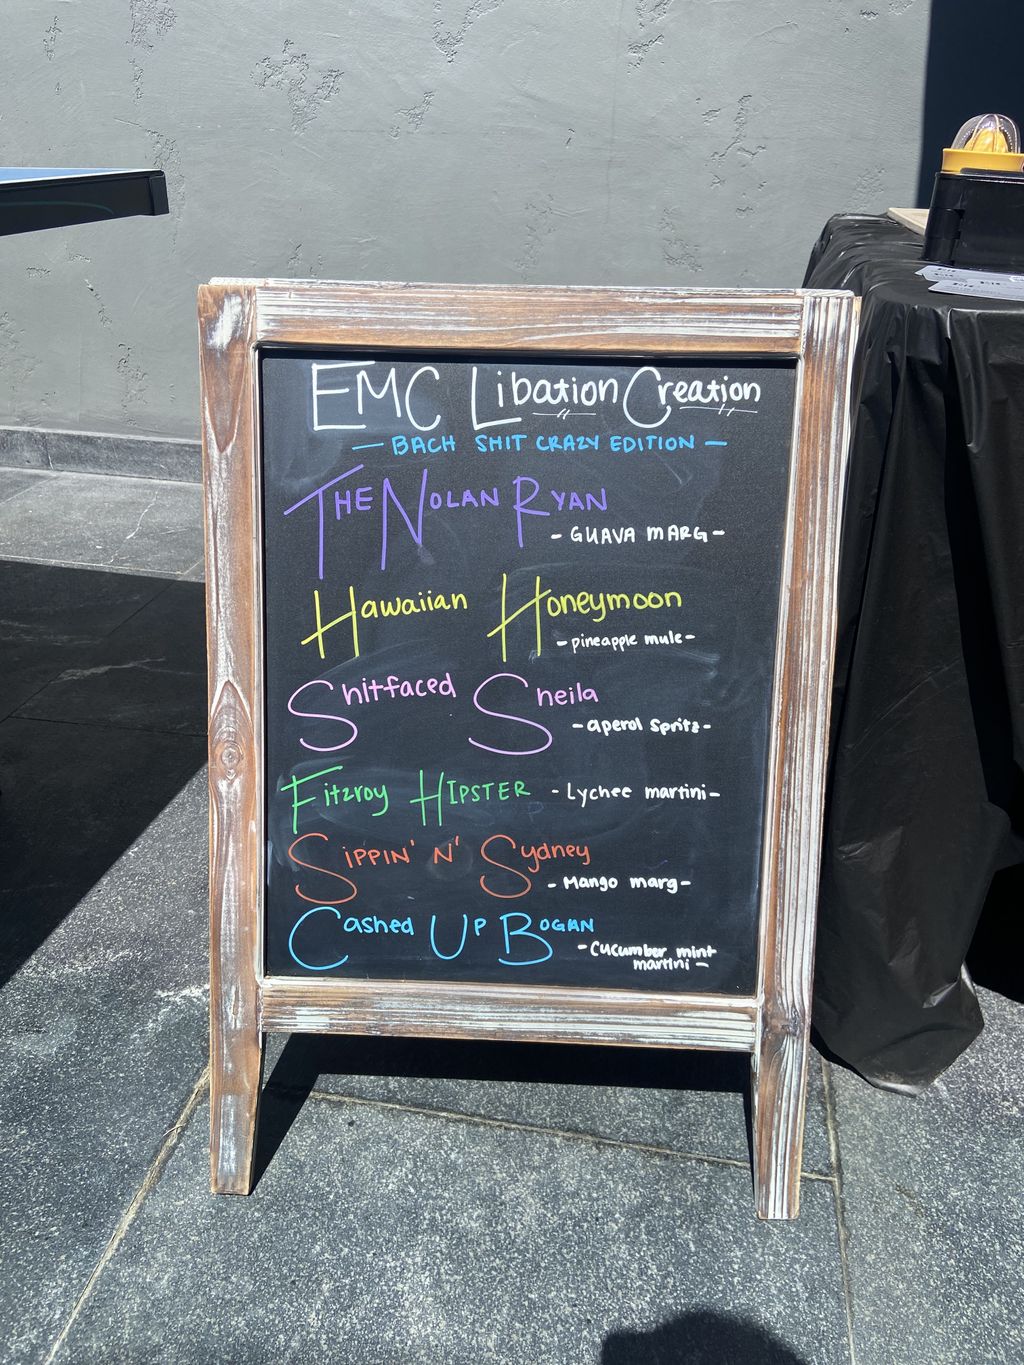 EMC Libation Creation
- BACH SHIT CRAZY EDITION -
THE NOLAN RYAN
- GUAVA MARG -
Hawaiian Honeymoon
- pineapple mule -
Shitfaced Sheila
- aperol spritz -
Fitzroy HIPSTER - Lychee martini -
SIPPIN' N' Sydney
- Mango marg -
Cashed UP BOGAN
- Cucumber mint
martini -